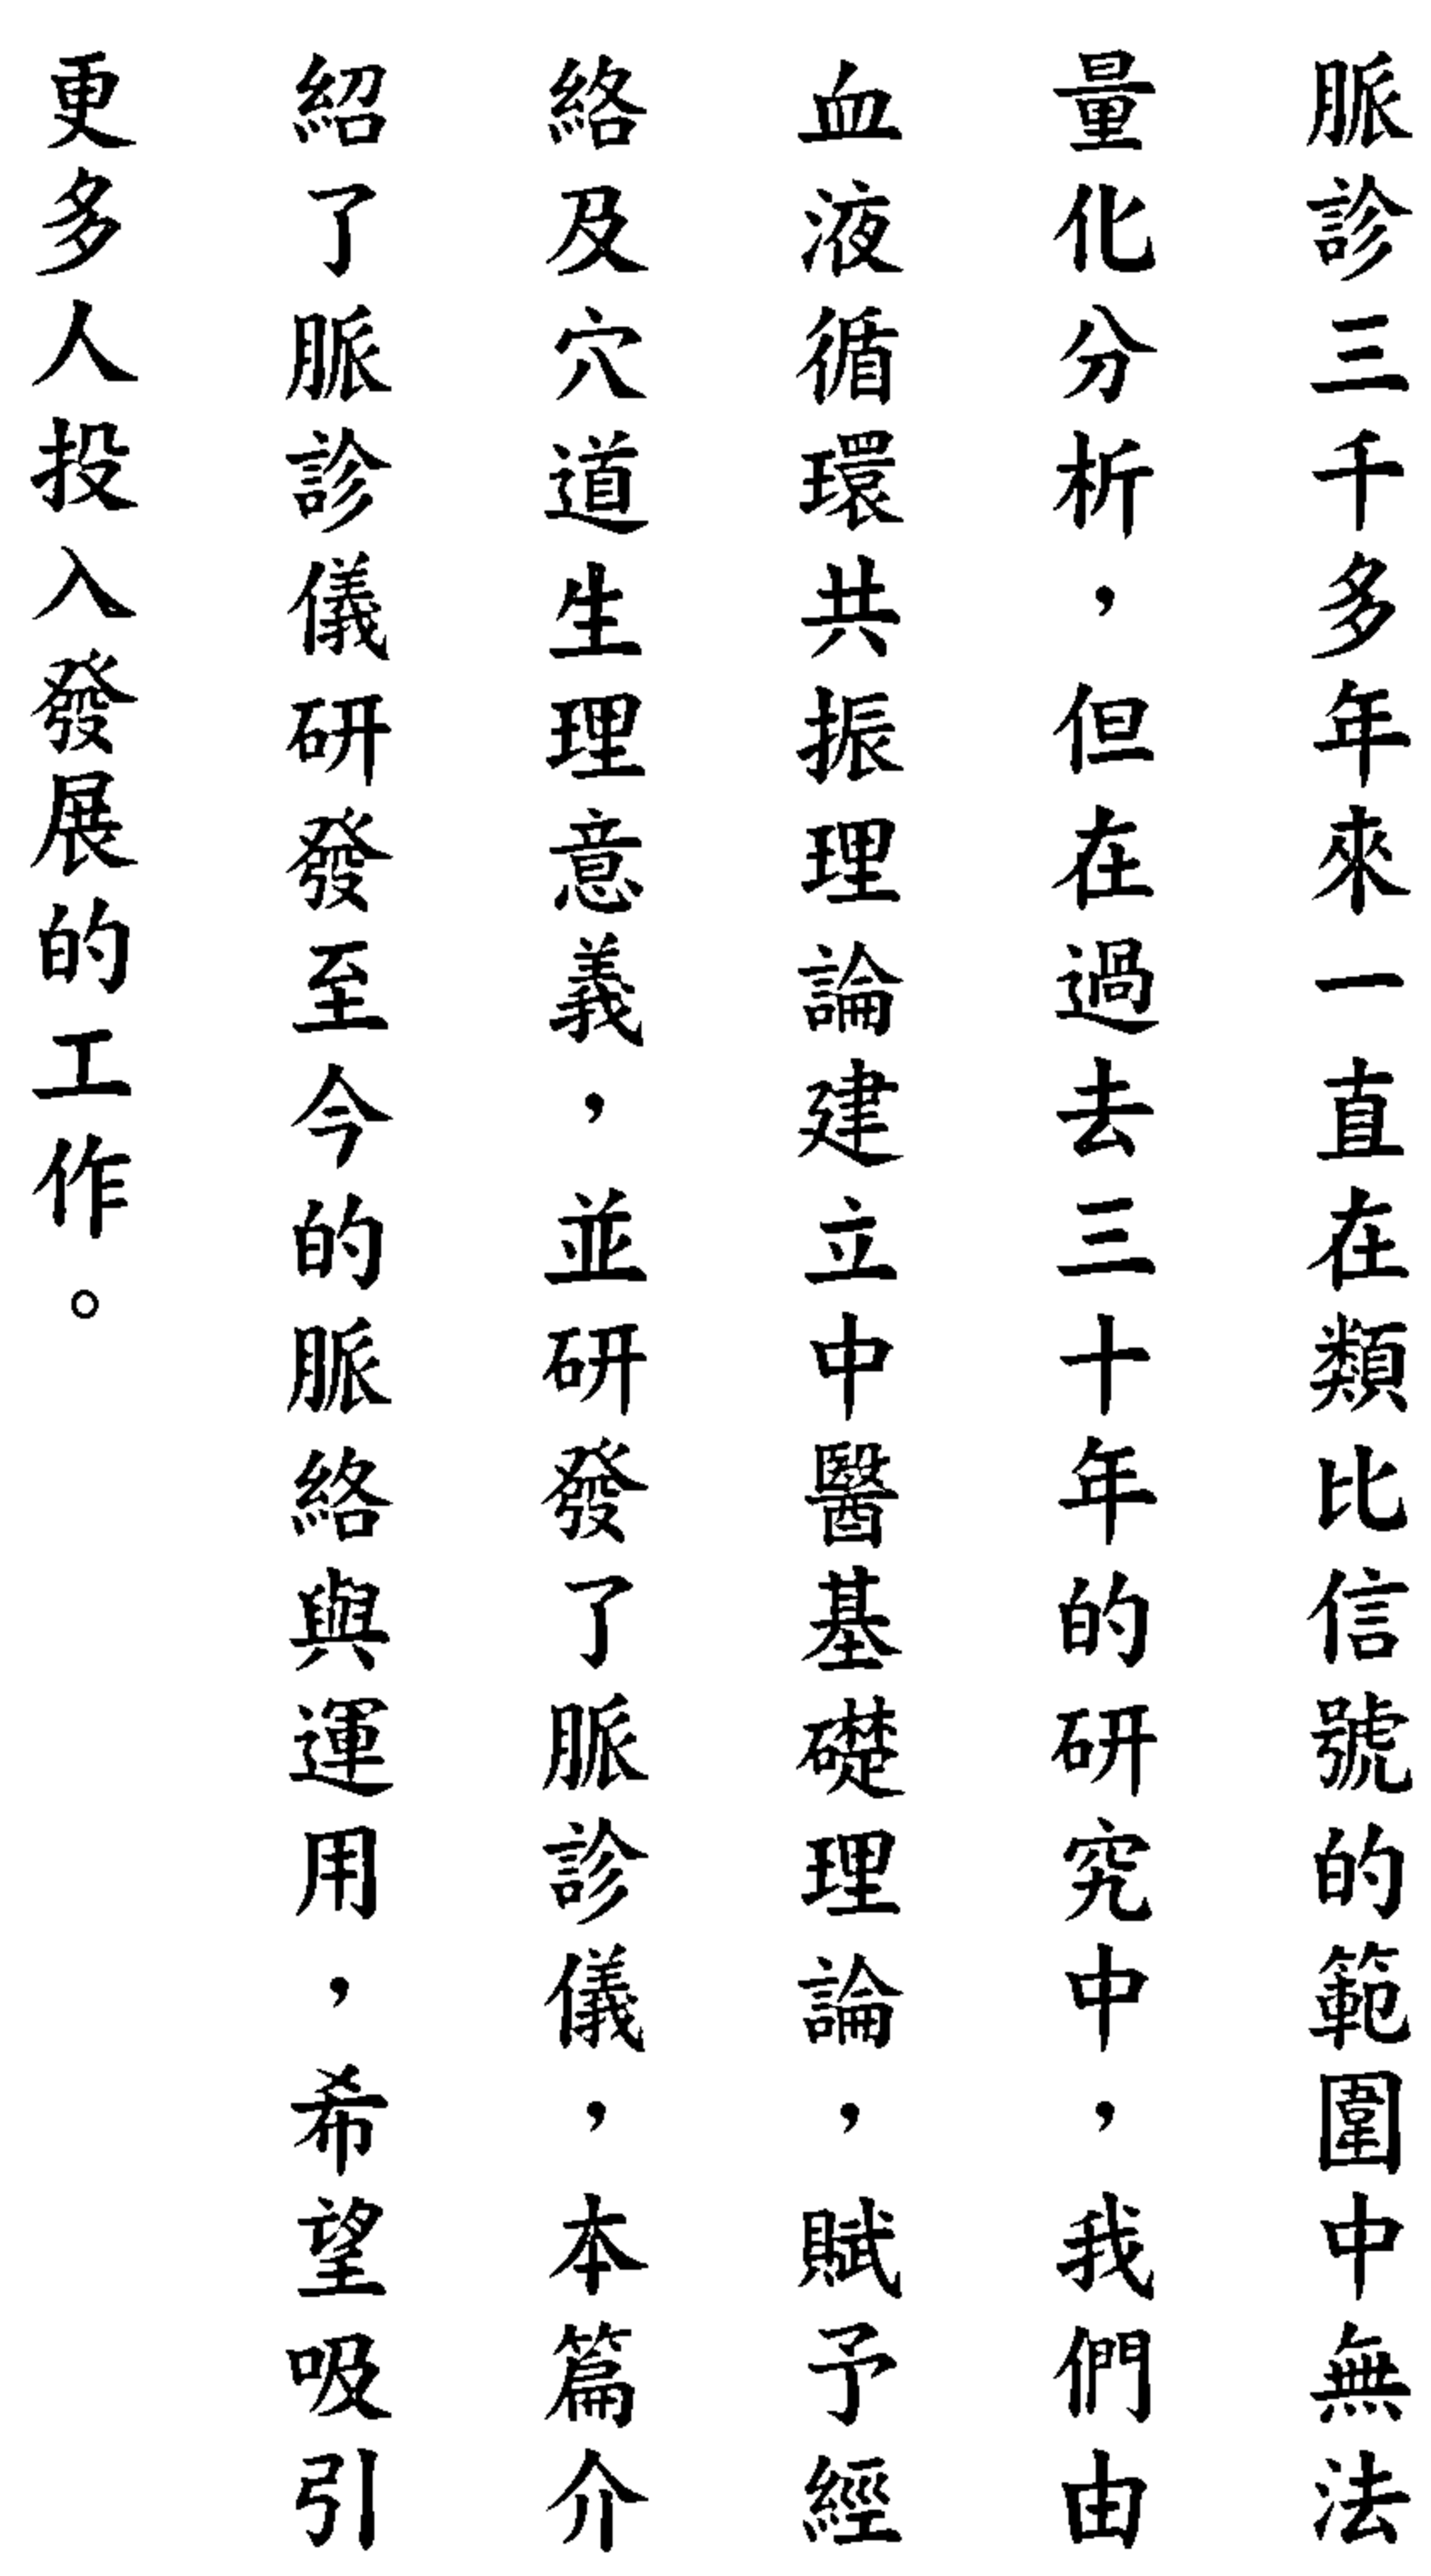 脈診三千多年來一直在類比信號的範圍中無法
量化分析，但在過去三十年的研究中，我們由
血液循環共振理論建立中醫基礎理論，賦予經
絡及穴道生理意義，並研發了脈診儀，本篇介
紹了脈診儀研發至今的脈絡與運用，希望吸引
更多人投入發展的工作。